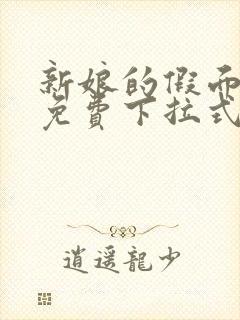 新娘的假面
免费下拉式
逍遥龍少